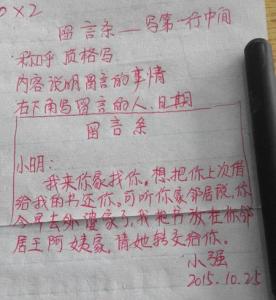 0×2
留言条——写第一行中间
称呼 顶格写
内容说明留言的事情
右下角写留言的人、日期
留言条
小明：
我来你家找你。想把你上次借
给我的书还你。可听你家邻居说，你
今早去外婆家了，我把书放在你邻
居王阿姨家，请她转交给你。
小强
2015.10.25